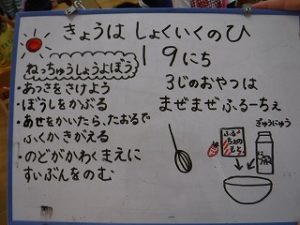 きょうは しょくいくのひ
19にち
ねっちゅうしょうよぼう
・あつさをさけよう
・ぼうしをかぶる
・あせをかいたら、たおるで
ふくかきがえる
・のどがかわくまえに
すいぶんをのむ
3じのおやつは
まぜまぜふるーちぇ
ぎゅうにゅう
ふるーちぇの
もと